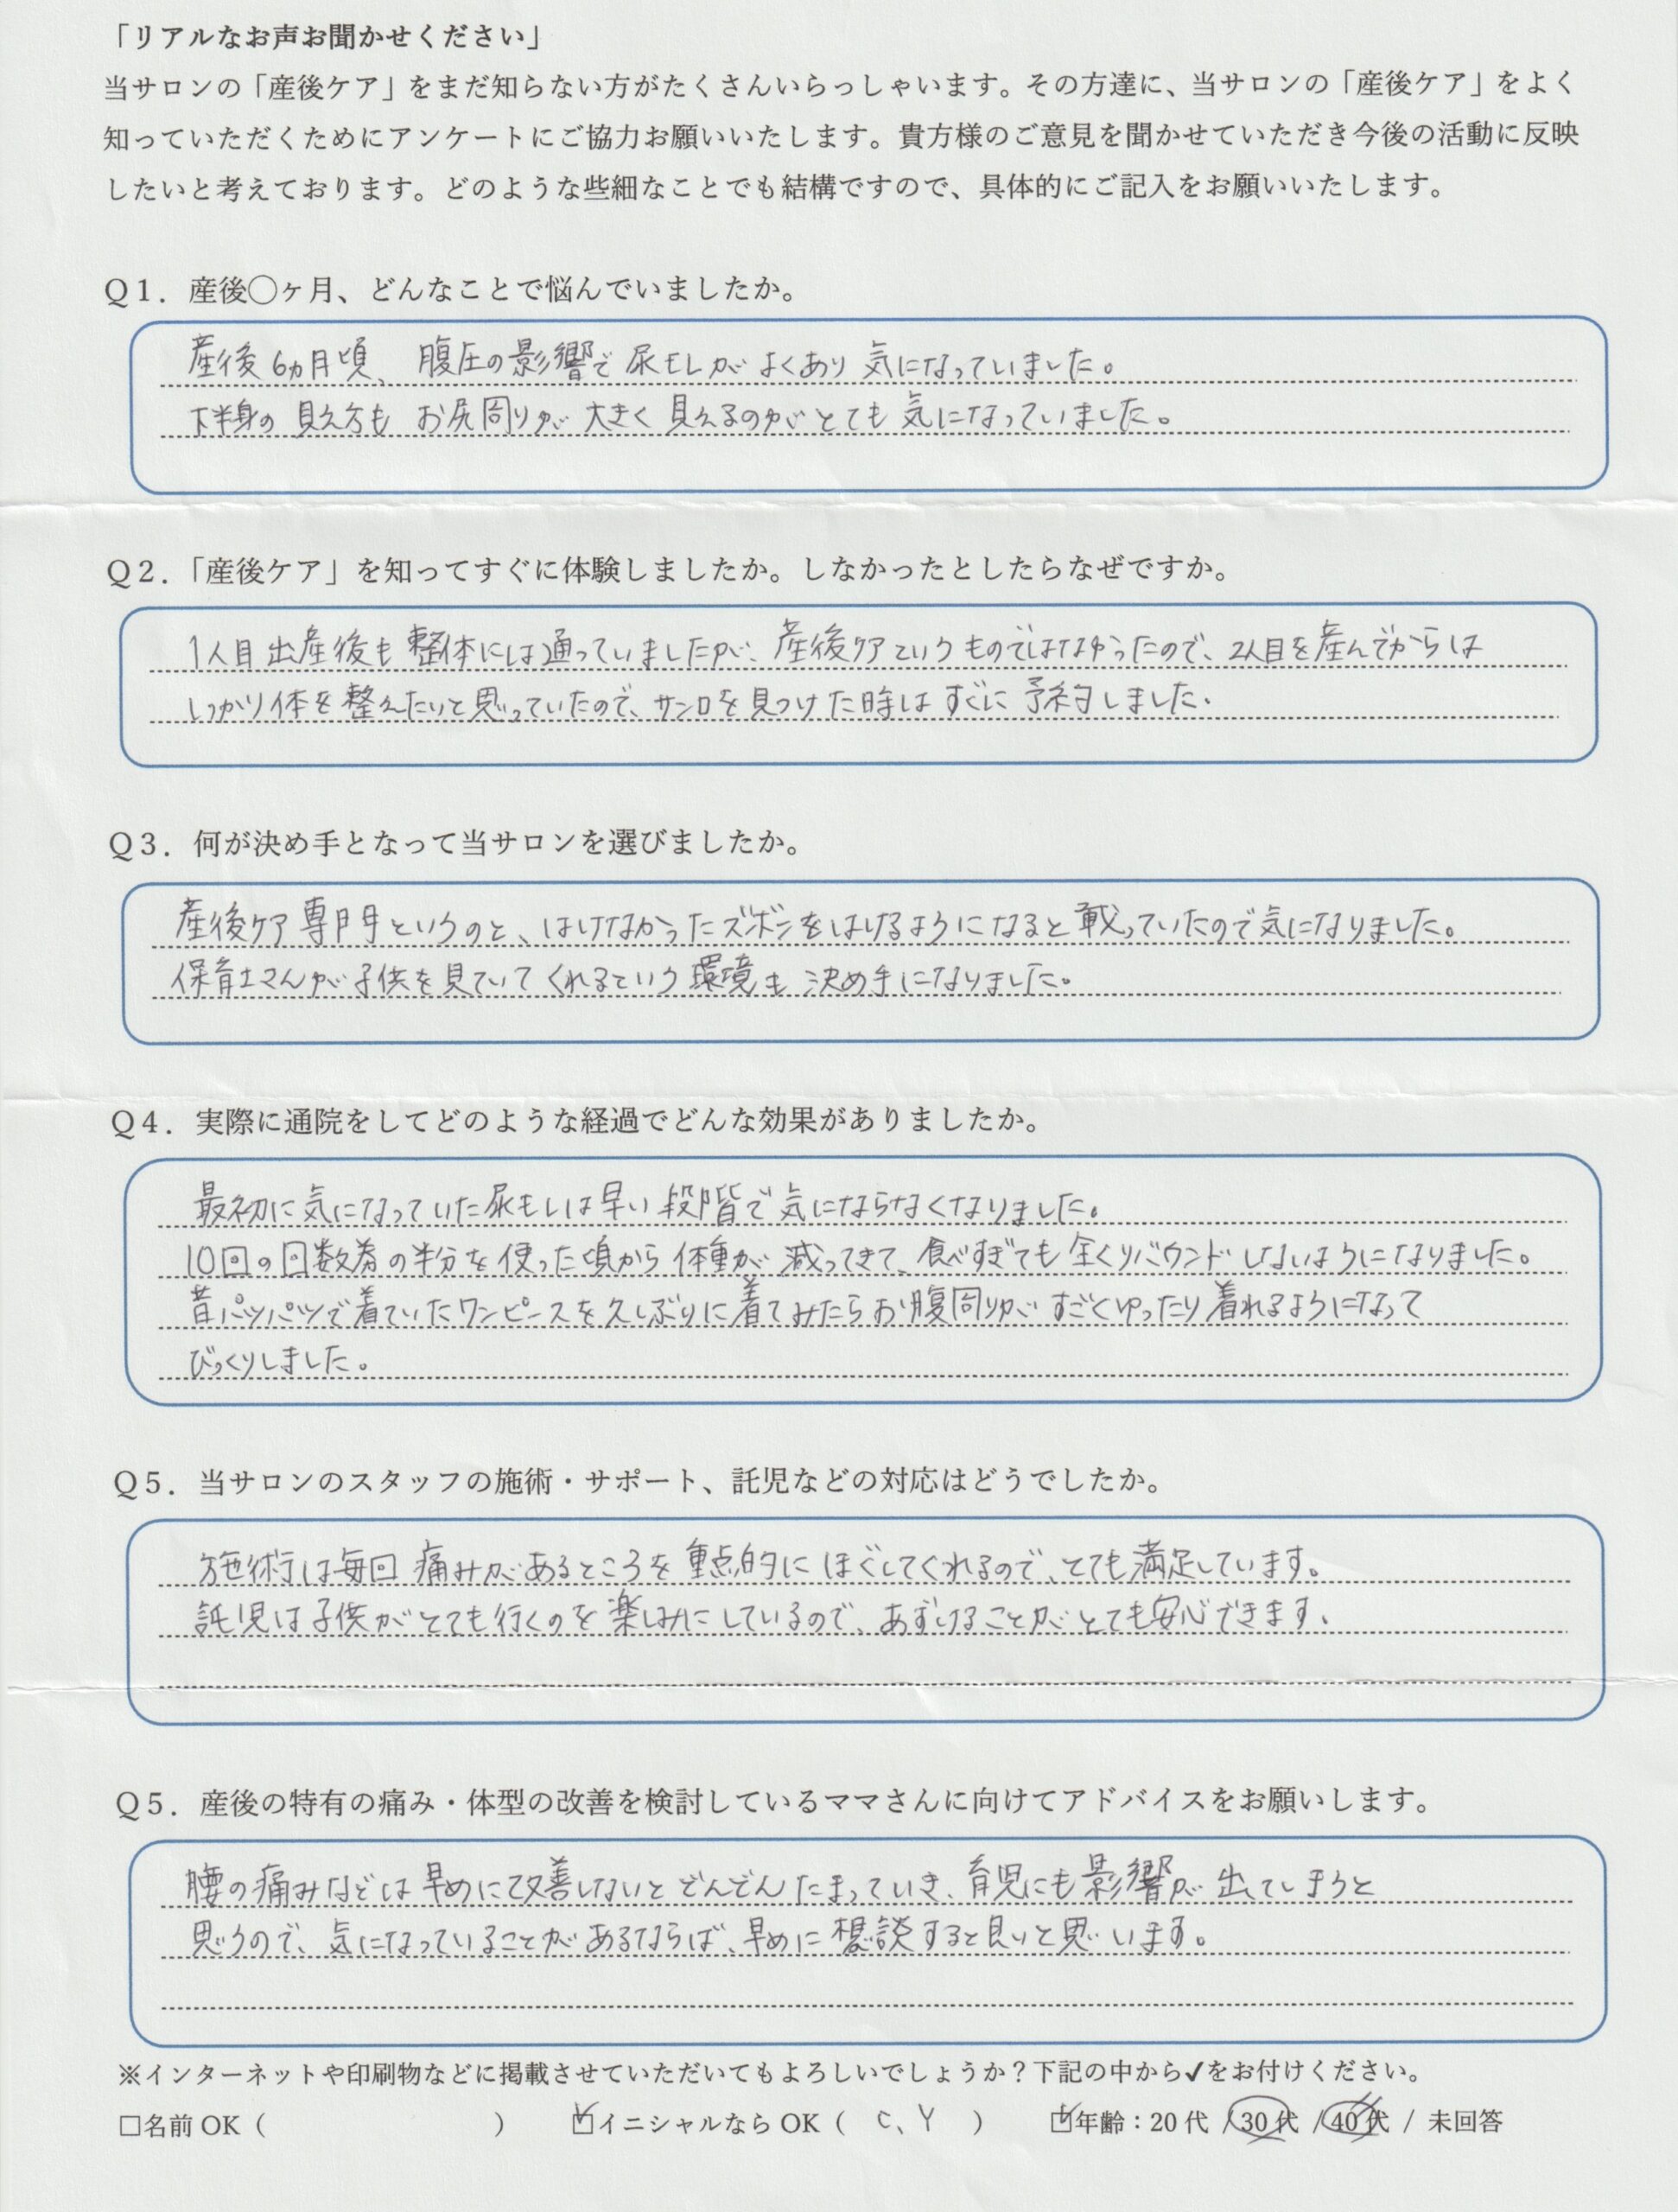 「リアルなお声お聞かせください」
当サロンの「産後ケア」をまだ知らない方がたくさんいらっしゃいます。その方達に、当サロンの「産後ケア」をよく
知っていただくためにアンケートにご協力お願いいたします。貴方様のご意見を聞かせていただき今後の活動に反映
したいと考えております。どのような些細なことでも結構ですので、具体的にご記入をお願いいたします。
Q1．産後◯ヶ月、どんなことで悩んでいましたか。
産後6ヵ月頃、腹圧の影響で尿モレがよくあり気になっていました。
下半身の見え方もお尻周りが大きく見えるのがとても気になっていました。
Q2．「産後ケア」を知ってすぐに体験しましたか。しなかったとしたらなぜですか。
1人目出産後も整体には通っていましたが、産後ケアというものではなかったので、2人目を産んでからは
しっかり体を整えたいと思っていたので、サンロを見つけた時はすぐに予約しました.
Q3．何が決め手となって当サロンを選びましたか。
産後ケア専門というのと、はけなかったズボンをはけるようになると載っていたので気になりました。
保育士さんが子供を見ていてくれるという環境も決め手になりました。
Q4．実際に通院をしてどのような経過でどんな効果がありましたか。
最初に気になっていた尿もしは早い段階で気にならなくなりました。
10回の回数券の半分を使った頃から体重が減ってきて、食べすぎても全くリバウンドしないようになりました。
昔パツパツで着ていたワンピースを久しぶりに着てみたらお腹周りがすごくゆったり着れるようになって
びっくりしました。
Q5．当サロンのスタッフの施術・サポート、託児などの対応はどうでしたか。
施術は毎回痛みがあるところを重点的にほぐしてくれるので、とても満足しています。
託児は子供がとても行くのを楽しみにしているので、あずけることがとても安心できます.
Q5．産後の特有の痛み・体型の改善を検討しているママさんに向けてアドバイスをお願いします。
腰の痛みなどは早めに改善しないとどんどんたまっていき、育児にも影響が出てしまうと
思うので、気になっていることがあるならば、早めに相談すると良いと思います。
※インターネットや印刷物などに掲載させていただいてもよろしいでしょうか？下記の中から✓をお付けください。
□名前 OK（　　　） ☑イニシャルなら OK（ C、Y ） ☑年齢：20代 / 30代 / 40代 / 未回答